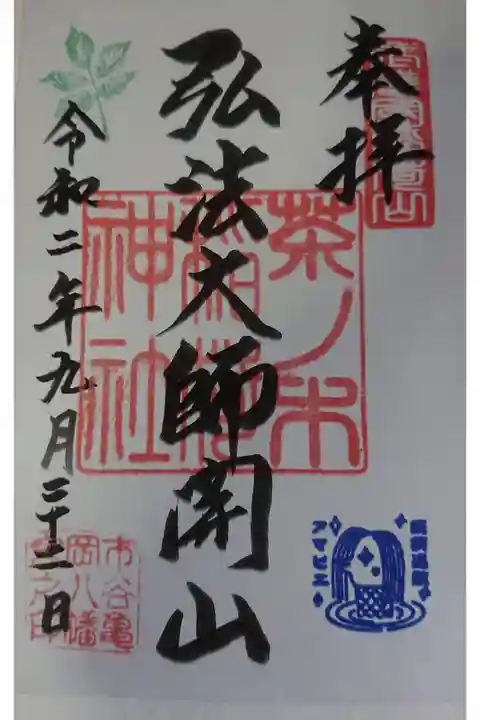 奉拝
弘法大師開山
令和二年九月二十二日
茶ノ木
稲荷
神社
市谷亀
岡八幡
宮之印
アマビエ